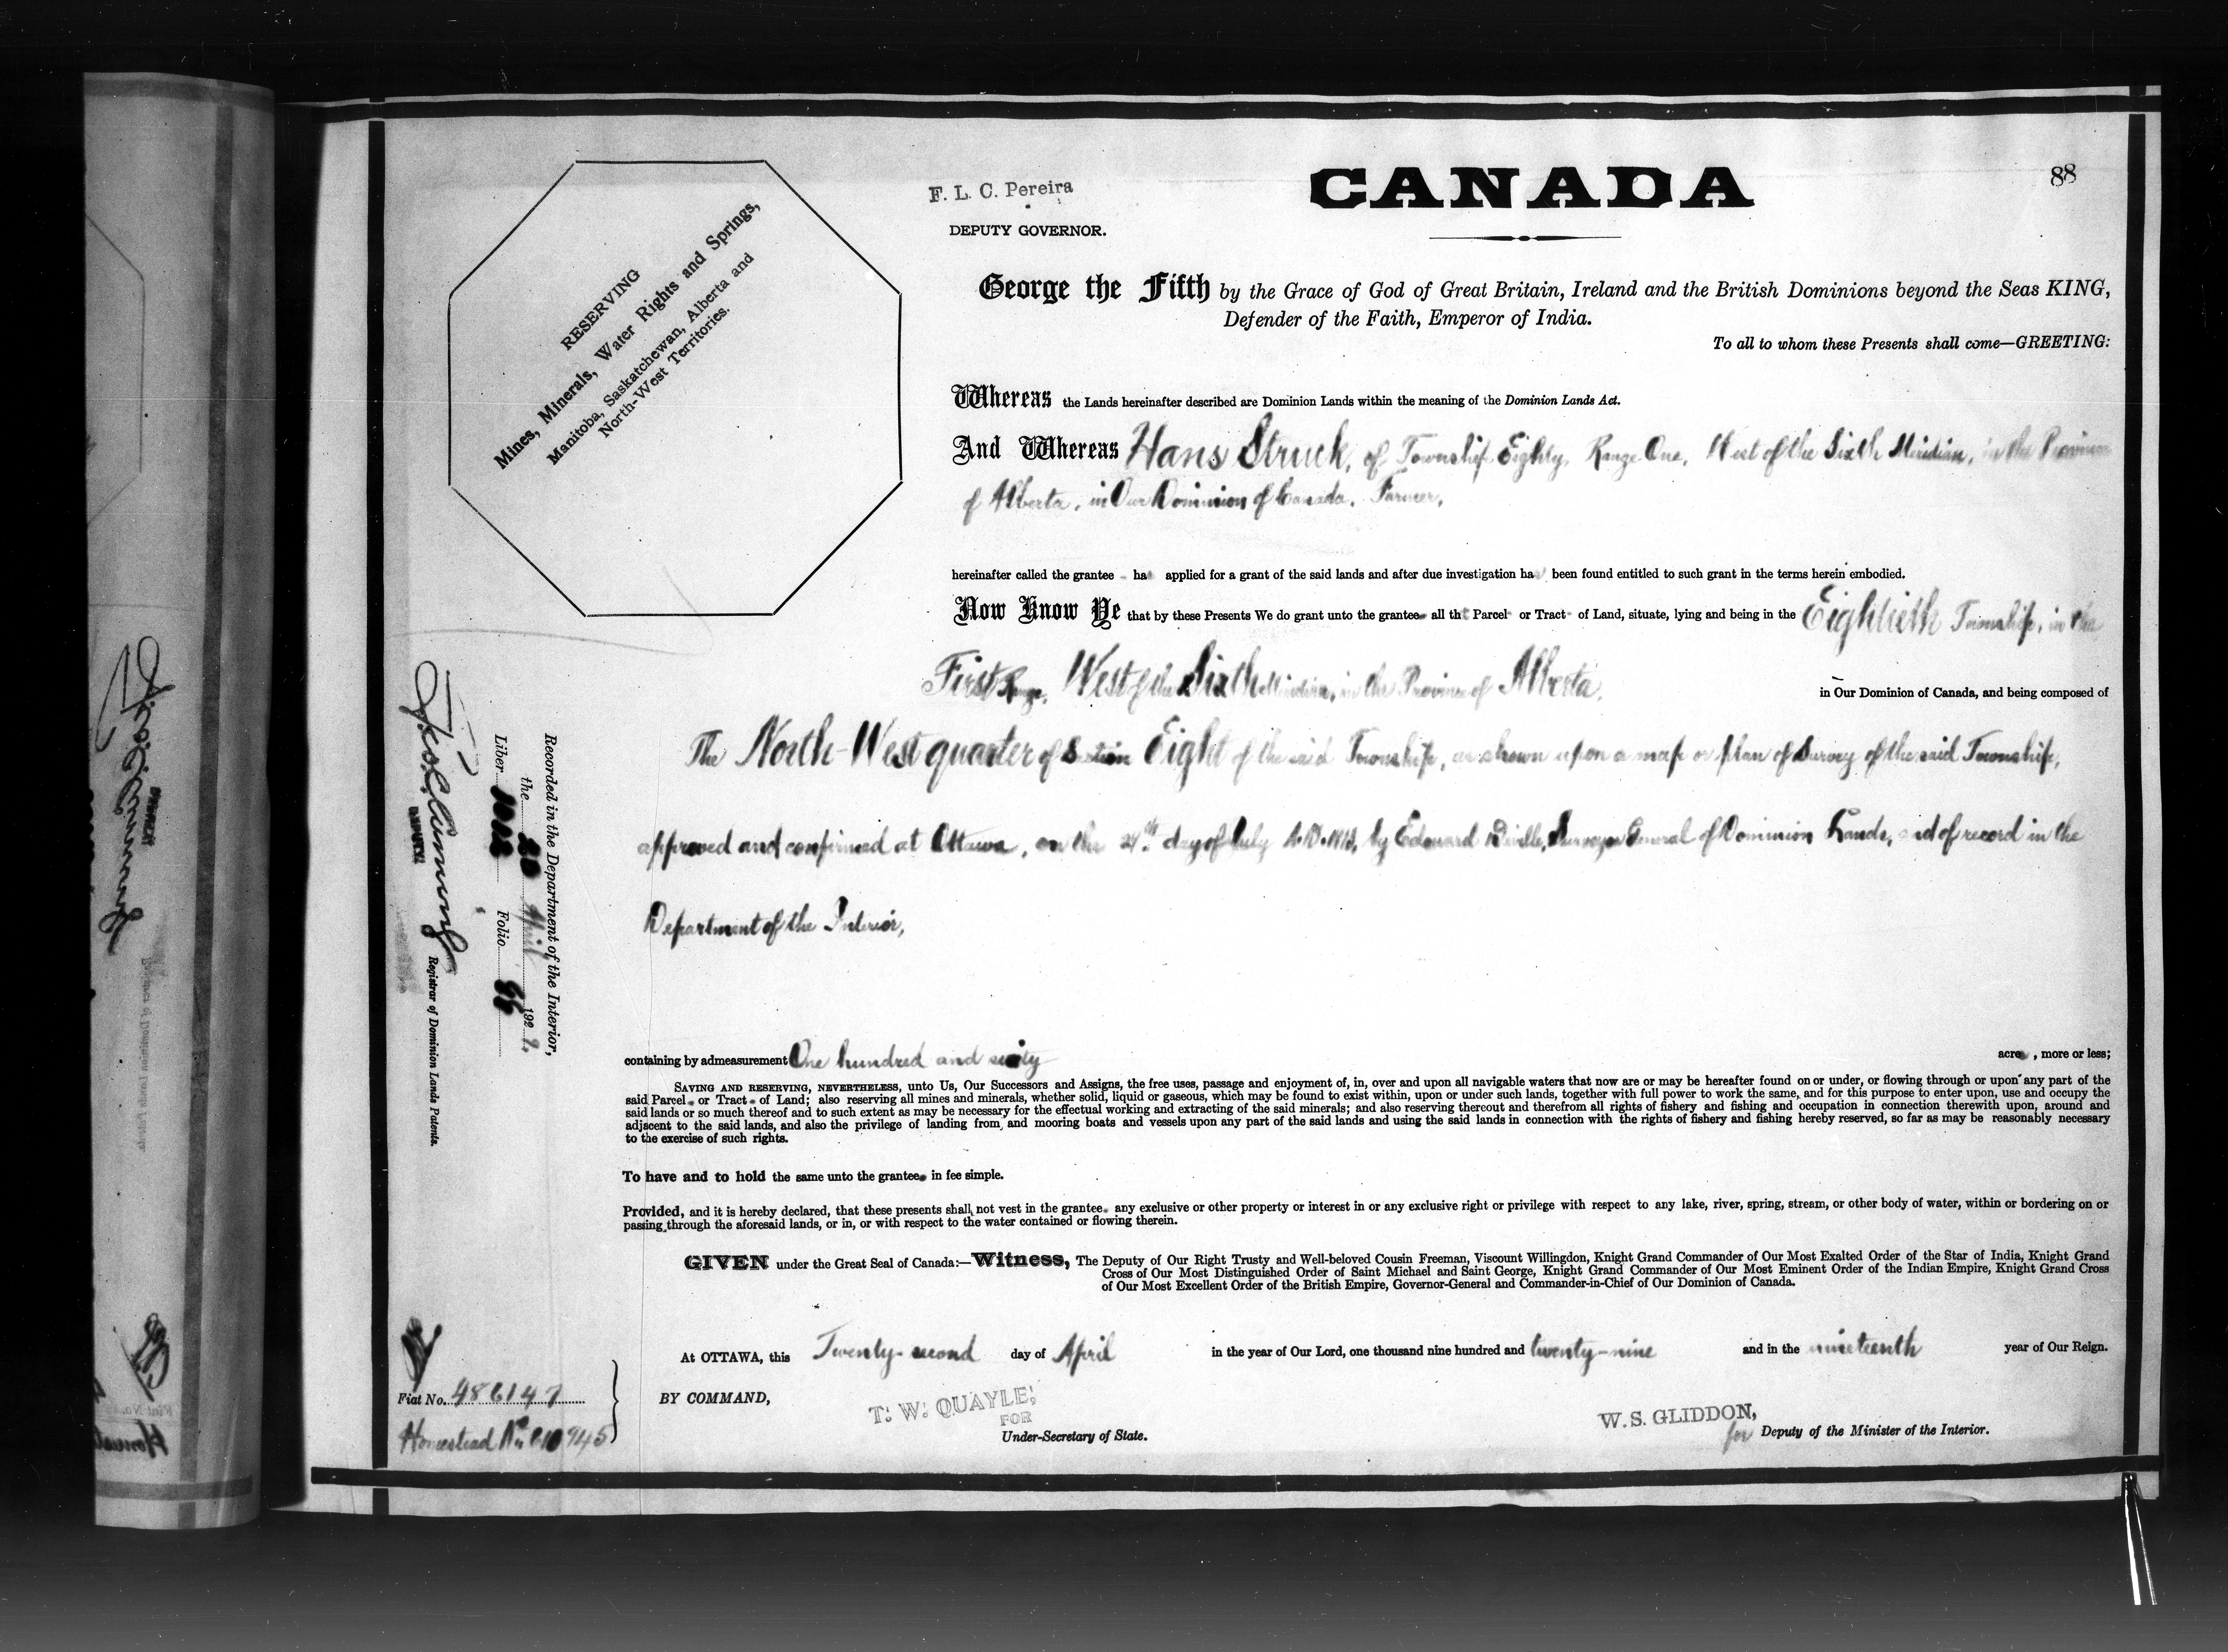 88
F. L. C. Pereira
DEPUTY GOVERNOR.
CANADA
RESERVING
Mines, Minerals, Water Rights and Springs,
Manitoba, Saskatchewan, Alberta and
North-West Territories.
George the Fifth by the Grace of God of Great Britain, Ireland and the British Dominions beyond the Seas KING,
Defender of the Faith, Emperor of India.
To all to whom these Presents shall come—GREETING:
Whereas the Lands hereinafter described are Dominion Lands within the meaning of the Dominion Lands Act.
And Whereas Hans Struck, of Township Eighty, Range One, West of the Sixth Meridian, in the Province
of Alberta, in Our Dominion of Canada, Farmer,
hereinafter called the grantee has applied for a grant of the said lands and after due investigation ha been found entitled to such grant in the terms herein embodied.
Now Know Ye that by these Presents We do grant unto the grantee all that Parcel or Tract of Land, situate, lying and being in the Eightieth Township, in the
First Range, West of the Sixth Meridian, in the Province of Alberta, in Our Dominion of Canada, and being composed of
The North-West quarter of Section Eight of the said Township, as shown upon a map or plan of Survey of the said Township,
approved and confirmed at Ottawa, on the 24th day of July A.D. by Edouard Deville, Surveyor General of Dominion Lands, and of record in the
Department of the Interior,
containing by admeasurement One hundred and sixty acres, more or less;
SAVING AND RESERVING, NEVERTHELESS, unto Us, Our Successors and Assigns, the free uses, passage and enjoyment of, in, over and upon all navigable waters that now are or may be hereafter found on or under, or flowing through or upon any part of the
said Parcel or Tract of Land; also reserving all mines and minerals, whether solid, liquid or gaseous, which may be found to exist within, upon or under such lands, together with full power to work the same, and for this purpose to enter upon, use and occupy the
said lands or so much thereof and to such extent as may be necessary for the effectual working and extracting of the said minerals; and also reserving thereout and therefrom all rights of fishery and fishing and occupation in connection therewith upon, around and
adjscent to the said lands, and also the privilege of landing from and mooring boats and vessels upon any part of the said lands and using the said lands in connection with the rights of fishery and fishing hereby reserved, so far as may be reasonably necessary
to the exercise of such rights.
To have and to hold the same unto the grantee in fee simple.
Provided, and it is hereby declared, that these presents shall not vest in the grantee any exclusive or other property or interest in or any exclusive right or privilege with respect to any lake, river, spring, stream, or other body of water, within or bordering on or
passing through the aforesaid lands, or in, or with respect to the water contained or flowing therein.
GIVEN under the Great Seal of Canada:—Witness, The Deputy of Our Right Trusty and Well-beloved Cousin Freeman, Viscount Willingdon, Knight Grand Commander of Our Most Exalted Order of the Star of India, Knight Grand
Cross of Our Most Distinguished Order of Saint Michael and Saint George, Knight Grand Commander of Our Most Eminent Order of the Indian Empire, Knight Grand Cross
of Our Most Excellent Order of the British Empire, Governor-General and Commander-in-Chief of Our Dominion of Canada.
At OTTAWA, this Twenty-second day of April in the year of Our Lord, one thousand nine hundred and twenty-nine and in the nineteenth year of Our Reign.
BY COMMAND,
T. W. QUAYLE,
FOR
Under-Secretary of State.
W. S. GLIDDON,
for Deputy of the Minister of the Interior.
Recorded in the Department of the Interior,
the April 192
Liber Folio
Registrar of Dominion Lands Patents.
Fiat No. 486147
Homestead No.